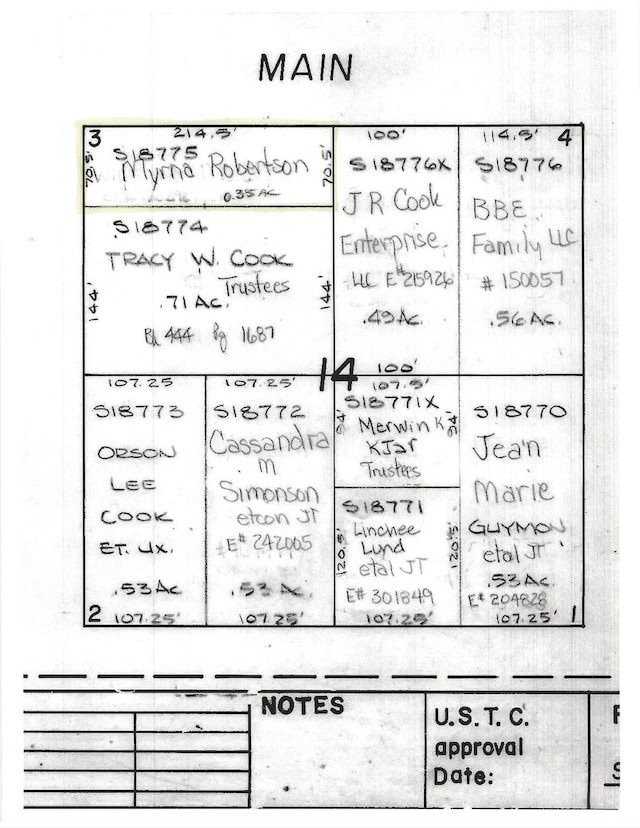 MAIN
3
214.5'
S18775
Myrna Robertson
70.5'
70.5'
0.35 AC
S18774
TRACY W. COOK
Trustees
.71 Ac.
144'
144'
Bk 444 Pg 1687
100'
S18776X
J R Cook
Enterprise
LLC E#215926
.49 Ac.
100'
114.5' 4
S18776
BBE
Family LLC
# 150057
.56 Ac.
14
107.25
S18773
ORSON
LEE
COOK
ET. UX.
.53 Ac
2 107.25'
107.25'
S18772
Cassandra
m
Simonson
etcon JT
E# 242005
.53 Ac.
107.25'
107.5'
S18771X
Merwin K
KJar
Trustees
94'
94'
S18771
Linchee
Lund
etal JT
120.5'
120.5'
E# 301849
107.25'
S18770
Jean
Marie
GUYMON
etal JT
.53 Ac.
E# 204828
107.25' 1
NOTES
U.S.T.C.
approval
Date: